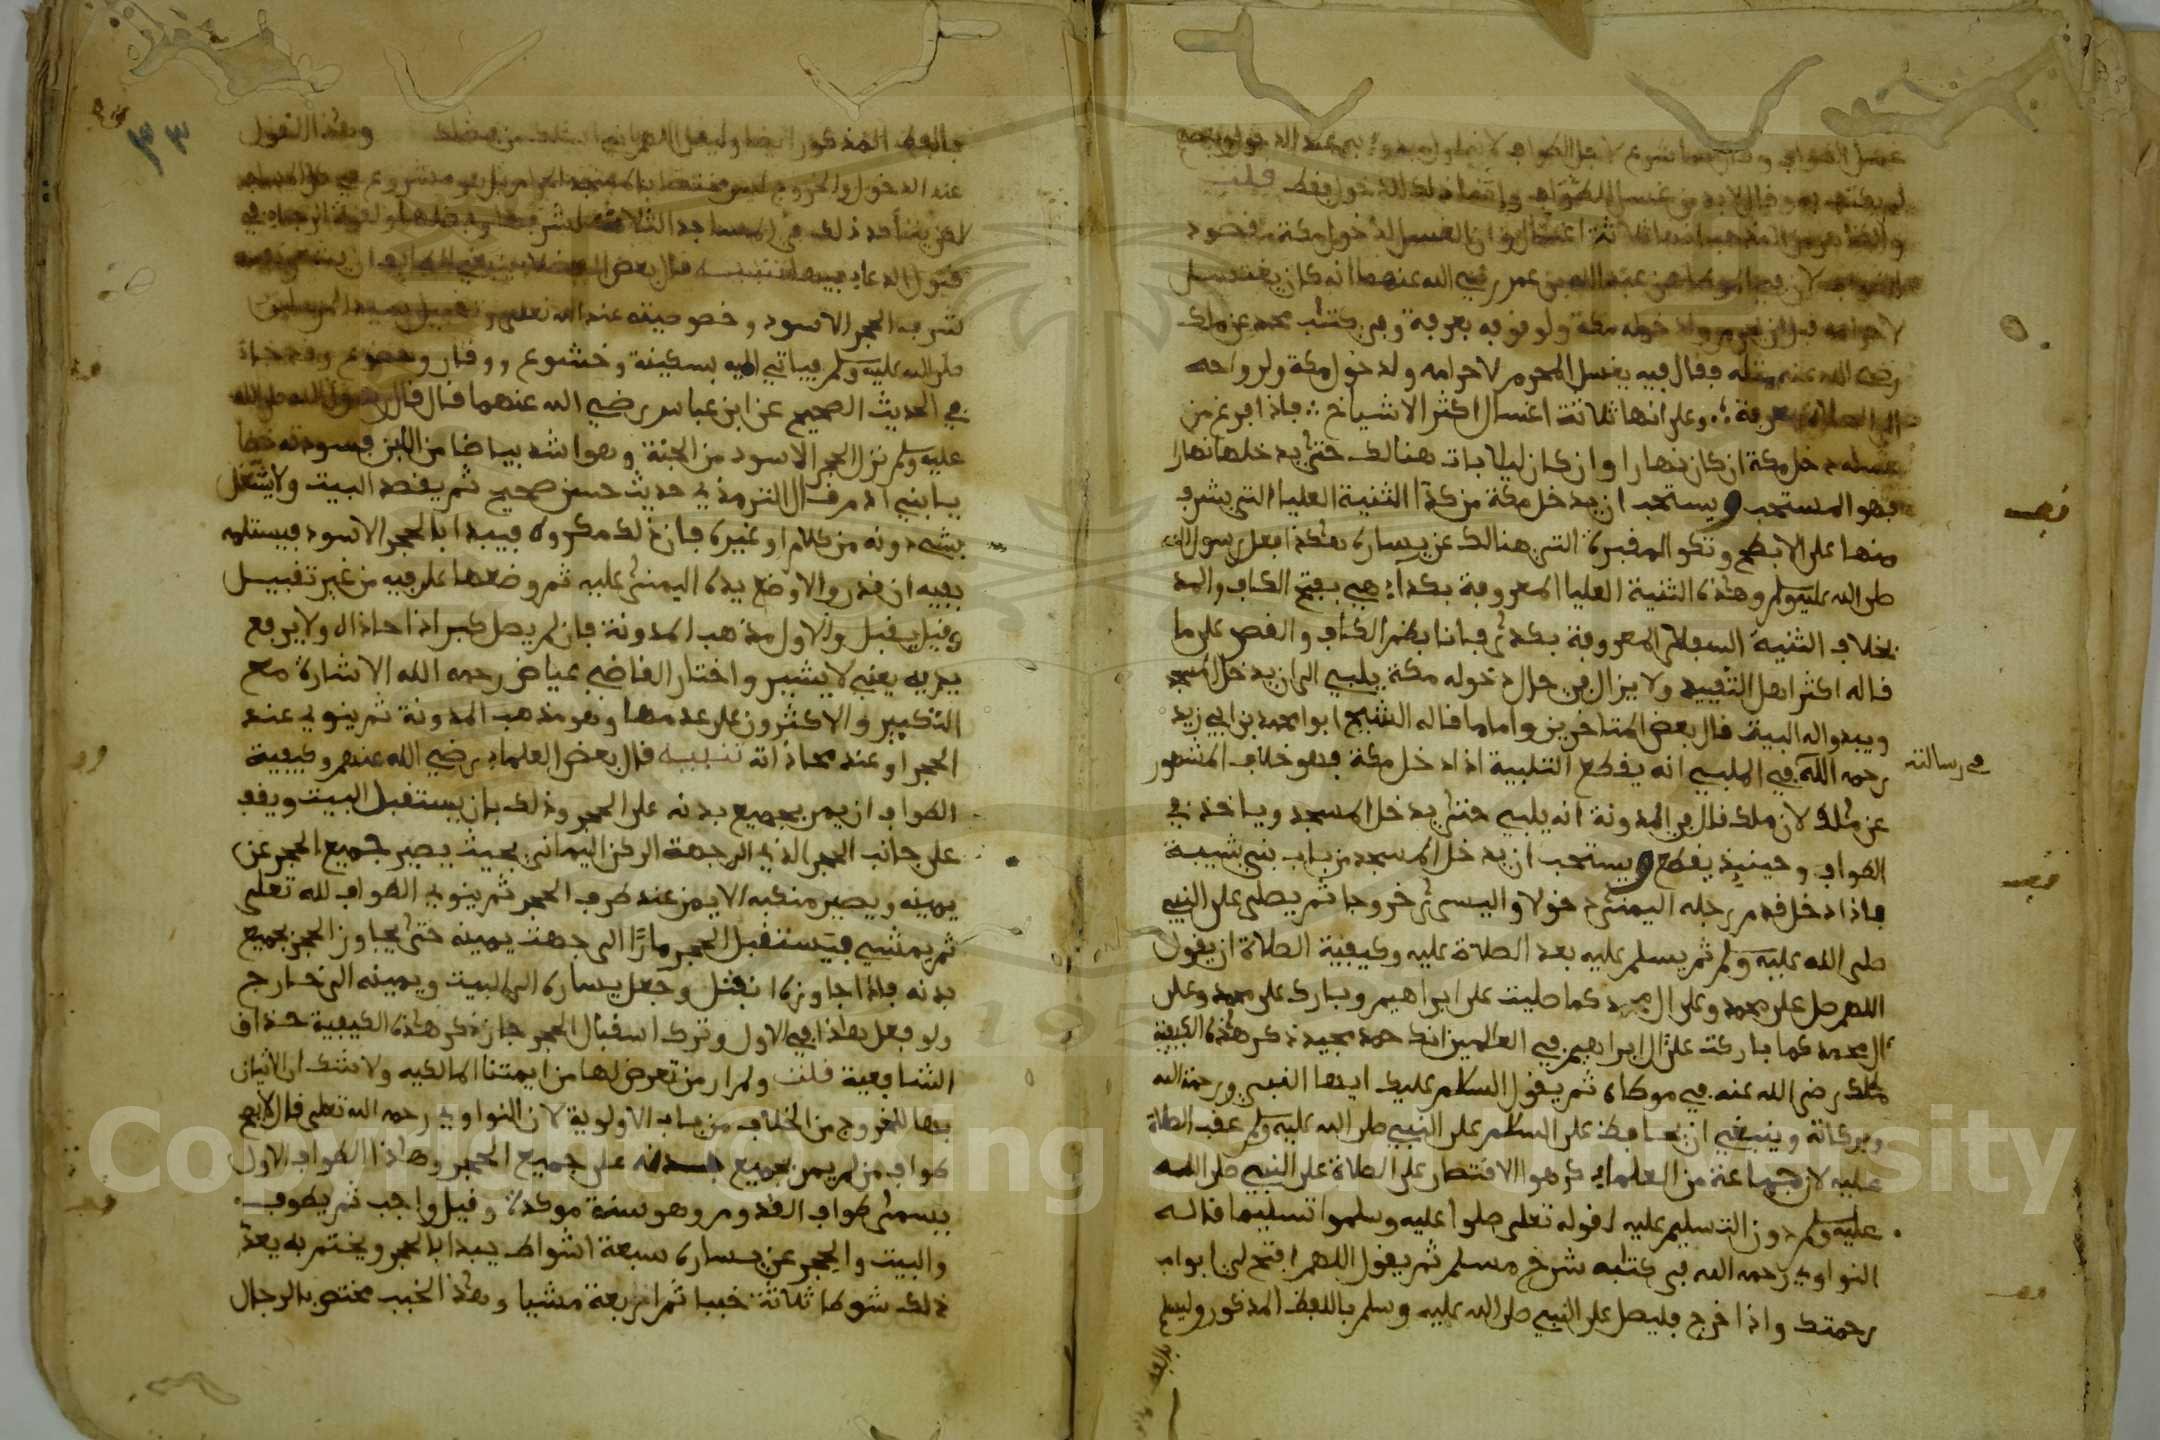 لاحرامه قبل ان يحرم ولدخوله مكة ولوقوفه بعرفة وفي كتاب محمد عن ملك
رضي الله عنه مثله فقال فيه يغسل المحرم لاحرامه ولدخول مكة ولرواحه
الى الصلاة بعرفة وعلى انها ثلاثة اغسال اكثر الاشياخ فاذا فرغ من
غسله دخل مكة ان كان نهارا وان كان ليلا بات هنالك حتى يدخلها نهارا
فهو المستحب ويستحب ان يدخل مكة من كدا الثنية العليا التي يشرف
منها على الابطح وتكو المقبرة التي هنالك عن يساره هكذا فعل رسول الله
صلى الله عليه وسلم وهذه الثنية العليا المعروفة بكدا هي بفتح الكاف والمد
بخلاف الثنية السفلى المعروفة بكدى فانا بضم الكاف والقصر على ما
قاله اكثر اهل التقييد ولا يزال في حال دخوله مكة يلبي الى ان يدخل المسجد
ويبدوا له البيت قال بعض المتاخرين واما ما قاله الشيخ ابو محمد بن ابي زيد
في رسالته
رحمه الله في الملبي انه يقطع التلبية اذا دخل مكة فهو خلاف المشهور
عن ملك لان ملك قال في المدونة انه يلبي حتى يدخل المسجد وياخذ في
الطواف وحينيذ يقطع ويستحب ان يدخل المسجد من باب بني شيبة
فاذا دخل قدم رجله اليمنى دخولا واليسرى خروجا ثم يصلى على النبي
صلى الله عليه وسلم ثم يسلم عليه بعد الصلاة عليه وكيفية الصلاة ان يقول
اللهم صل على محمد وعلى ال محمد كما صليت على ابراهيم وبارك على محمد وعلى
ال محمد كما باركت على ال ابراهيم في العالمين انك حمد مجيد ذكر هذه الكيفية
ملك رضي الله عنه في موطاه ثم يقول السلم عليك ايها النبي ورحمة الله
وبركاته وينبغي ان يحافظ على السلم على النبي صلى الله عليه وسلم عقب الصلاة
عليه لان جماعة من العلماء كرهوا الاقتصار على الصلاة على النبي صلى الله
عليه وسلم دون التسليم عليه لقوله تعلى صلوا عليه وسلموا تسليما قاله
النواوي رحمه الله في كتابه شرح مسلم ثم يقول اللهم افتح لي ابواب
رحمتك واذا خرج فليصل على النبي صلى الله عليه وسلم باللفظ المذكور وليسلم
٣٣
باللفظ المذكور ايضا وليقل اللهم اني اسئلك من فضلك وهذا القول
عند الدخول والخروج ليس مختصا بالمسجد الحرام بل هو مشروع في كل المساجد
لكن يتأكد ذلك في المساجد الثلاثة لشرفها وفضلها ولقوة الرجاء في
قبول الدعاء فيها تنبيه قال بعض الفضلا
لشرف الحجر الاسود وخصوصيته عند الله تعلى
صلى الله عليه وسلم فياتي اليه بسكينة وخشوع ووقار وخضوع وقد جاء
في الحديث الصحيح عن ابن عباس رضي الله عنهما قال قال رسول الله صلى الله
عليه وسلم نزل الحجر الاسود من الجنة وهو اشد بياضا من اللبن فسودته خطا
يا بني ادم قال الترمذي حديث حسن صحيح ثم يقصد البيت ولا يشتغل
بشيء دونه من كلام او غيره فان ذلك مكروه فيبدا بالحجر الاسود فيستلمه
بفيه ان قدر والا وضع يده اليمنى عليه ثم وضعها على فيه من غير تقبيل
وقيل يقبل والاول مذهب المدونة فان لم يصل كبر اذا حاذاه ولا يرفع
يديه يعني لا يشير واختار القاضي عياض رحمه الله الاشارة مع
التكبير والاكثرون على عدمها وهو مذهب المدونة ثم ينوي عند
الحجر او عند محاذاته تنبيه قال بعض العلماء رضي الله عنهم وكيفية
الطواف ان يمر بجميع بدنه على الحجر وذلك بان يستقبل البيت ويقف
على جانب الحجر الذي الى جهة الركن اليماني بحيث يصير جميع الحجر عن
يمينه ويصير منكبه الايمن عند طرف الحجر ثم ينوي الطواف لله تعلى
ثم يمشي فيستقبل الحجر مارًّا الى جهت يمينه حتى يجاوز الحجر بجميع
بدنه فاذا جاوزه انفتل وجعل يساره الى البيت ويمينه الى خارج
ولو فعل هذا في الاول وترك اسقبال الحجر جاز ذكر هذه الكيفية حذاق
الشافعية قلت ولم ار من تعرض لها من ايمتنا المالكيه ولا شك ان الاتيان
بها للخروج من الخلاف من باب الاولوية لان النواوي رحمه الله تعلى قال لا يصح
طواف من لم يمر بجميع بدنه على جميع الحجر وهذا الطواف الاول
يسمى طواف القدوم وهو سنة موكدة وقيل واجب ثم يطوف
والبيت والحجر عن يساره سبعة اشواط يبدا بالحجر ويختم به يعد
ذلك شوطا ثلاثة خببا ثم اربعة مشيا وهذا الخبب مختص بالرجال